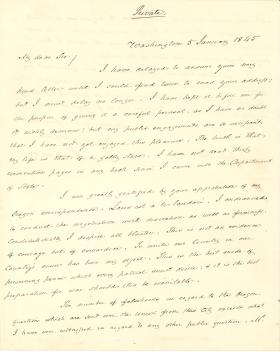 Private
Washington 5 January 1845
My dear Sir/
I have delayed to answer your very
kind letter until I could find time to read your address;
but I must delay no longer. I have kept it by me for
the purpose of giving it a careful perusal, as I have no doubt
it richly deserves; but my public engagements are so incessant
that I have not yet enjoyed this pleasure. The truth is that
my life is that of a galley slave. I have not read thirty
consecutive pages in any book since I came into the Department
of State.
I am greatly gratified by your approbation of my
Oregon correspondence. Laus est a te laudari. I endeavored
to conduct the negotiation with moderation as well as firmness.
Confidentially I despise all bluster. This is not an evidence
of courage but of cowardice. To unite our Country in our
Country's cause has been my object. This is the best mode of
preserving peace which every patriot must desire; & it is the best
preparation for war should this be inevitable.
The number of falsehoods in regard to the Oregon
question which are sent over the country from this city exceeds what
I have ever witnessed in regard to any other public question. Mr